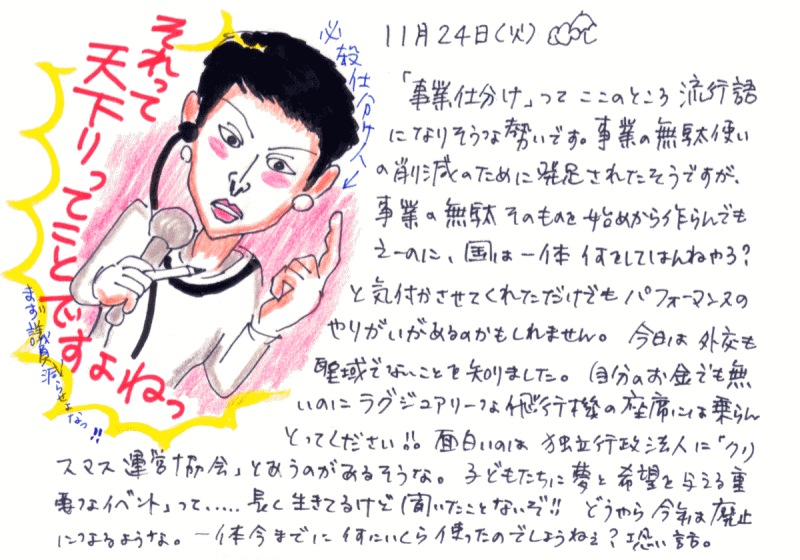 それって
天下りってことですよねっ
必殺仕分け人
まず議員減らせよなっ!!
11月24日(火)
「事業仕分け」って ここのところ 流行語
になりそうな勢いです。事業の無駄使い
の削減のために発足されたそうですが、
事業の無駄そのものを始めから作らんでも
えーのに、国は一体 何をしてはんねやろ?
と気付かさせてくれただけでもパフォーマンスの
やりがいがあるのかもしれません。今日は 外交も
聖域でないことを知りました。自分のお金でも無
いのにラグジュアリーな飛行機の座席には乗らん
とってください!! 面白いのは 独立行政法人に「クリ
スマス運営協会」とあうのがあるそうな。子どもたちに夢と希望を与える重
要なイベント」って.....長く生きてるけど聞いたことないぞ!! どうやら今年は廃止
になるような。一体今までに何にいくら使ったのでしょうねえ?恐い話。